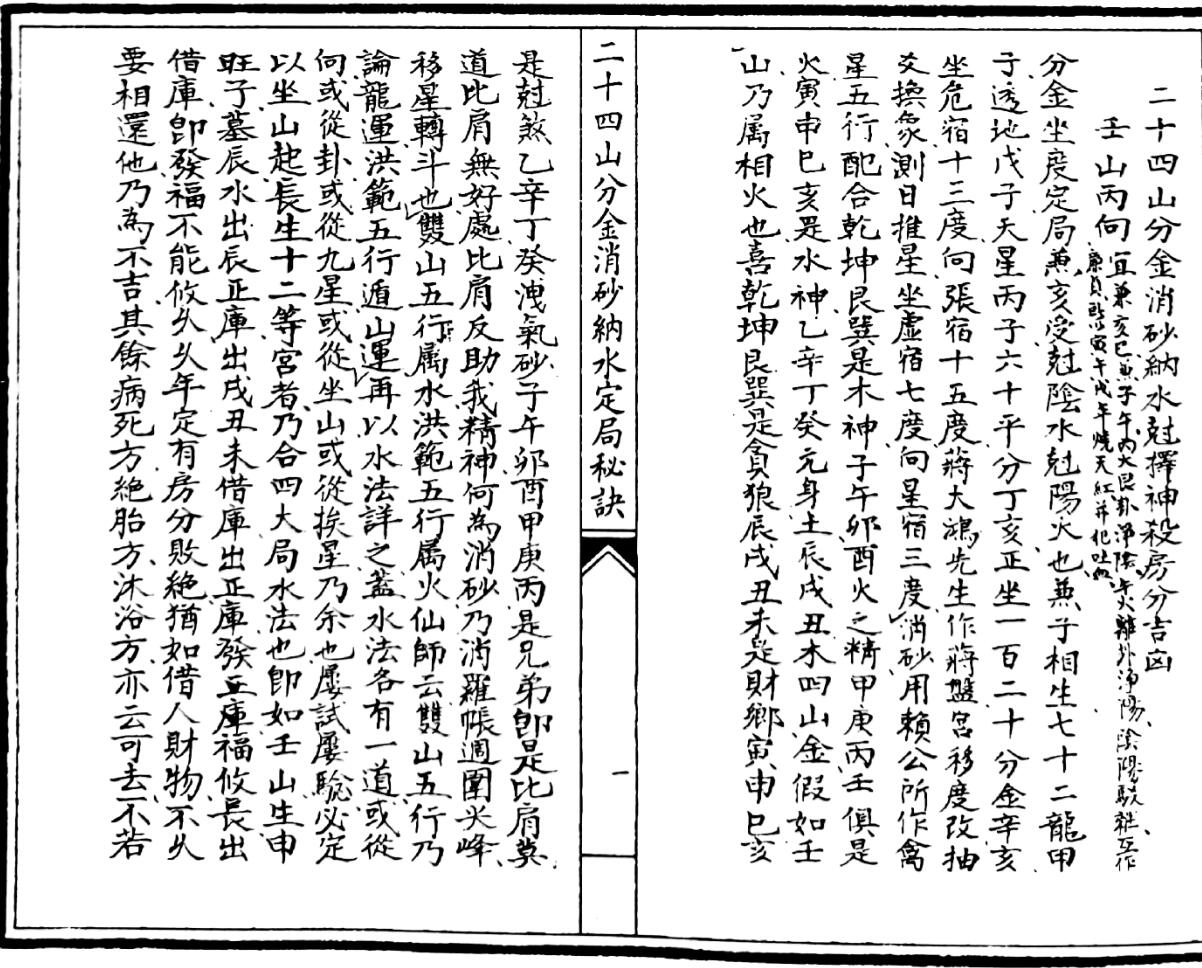 二十四山分金消砂納水尅擇神殺房分吉凶
壬山丙向
宜兼亥巳兼子午丙火艮卦淨陰午火離卦淨陽陰陽駁雜互作
廉貞照寅午戌年燒天紅并犯吐血
分金坐度定局兼亥受尅陰水尅陽火也兼子相生七十二龍甲
子透地戊子天星丙子六十平分丁亥正坐一百二十分金辛亥
坐危宿十三度向張宿十五度蔣大鴻先生作蔣盤宮移度改抽
爻換象測日推星坐虛宿七度向星宿三度消砂用賴公所作禽
星五行配合乾坤艮巽是木神子午卯酉火之精甲庚丙壬俱是
火寅申巳亥是水神乙辛丁癸元身土辰戌丑未四山金假如壬
山乃属相火也喜乾坤艮巽是貪狼辰戌丑未是財鄉寅申巳亥
二十四山分金消砂納水定局秘訣
一
是尅煞乙辛丁癸洩氣砂子午卯酉甲庚丙是兄弟卽是比肩莫
道比肩無好處比肩反助我精神何為消砂乃消羅帳週圍尖峰
移星轉斗也雙山五行属水洪範五行属火仙師云雙山五行乃
論龍運洪範五行遁山運再以水法詳之蓋水法各有一道或從
向或從卦或從九星或從坐山或從挨星乃余也屢試屢驗必定
以坐山起長生十二等宮者乃合四大局水法也卽如壬山生申
旺子墓辰水出辰正庫出戌丑未借庫出正庫發正庫福攸長出
借庫卽發福不能攸久久年定有房分敗絕猶如借人財物不久
要相還他乃為不吉其餘病死方絕胎方沐浴方亦云可去不若